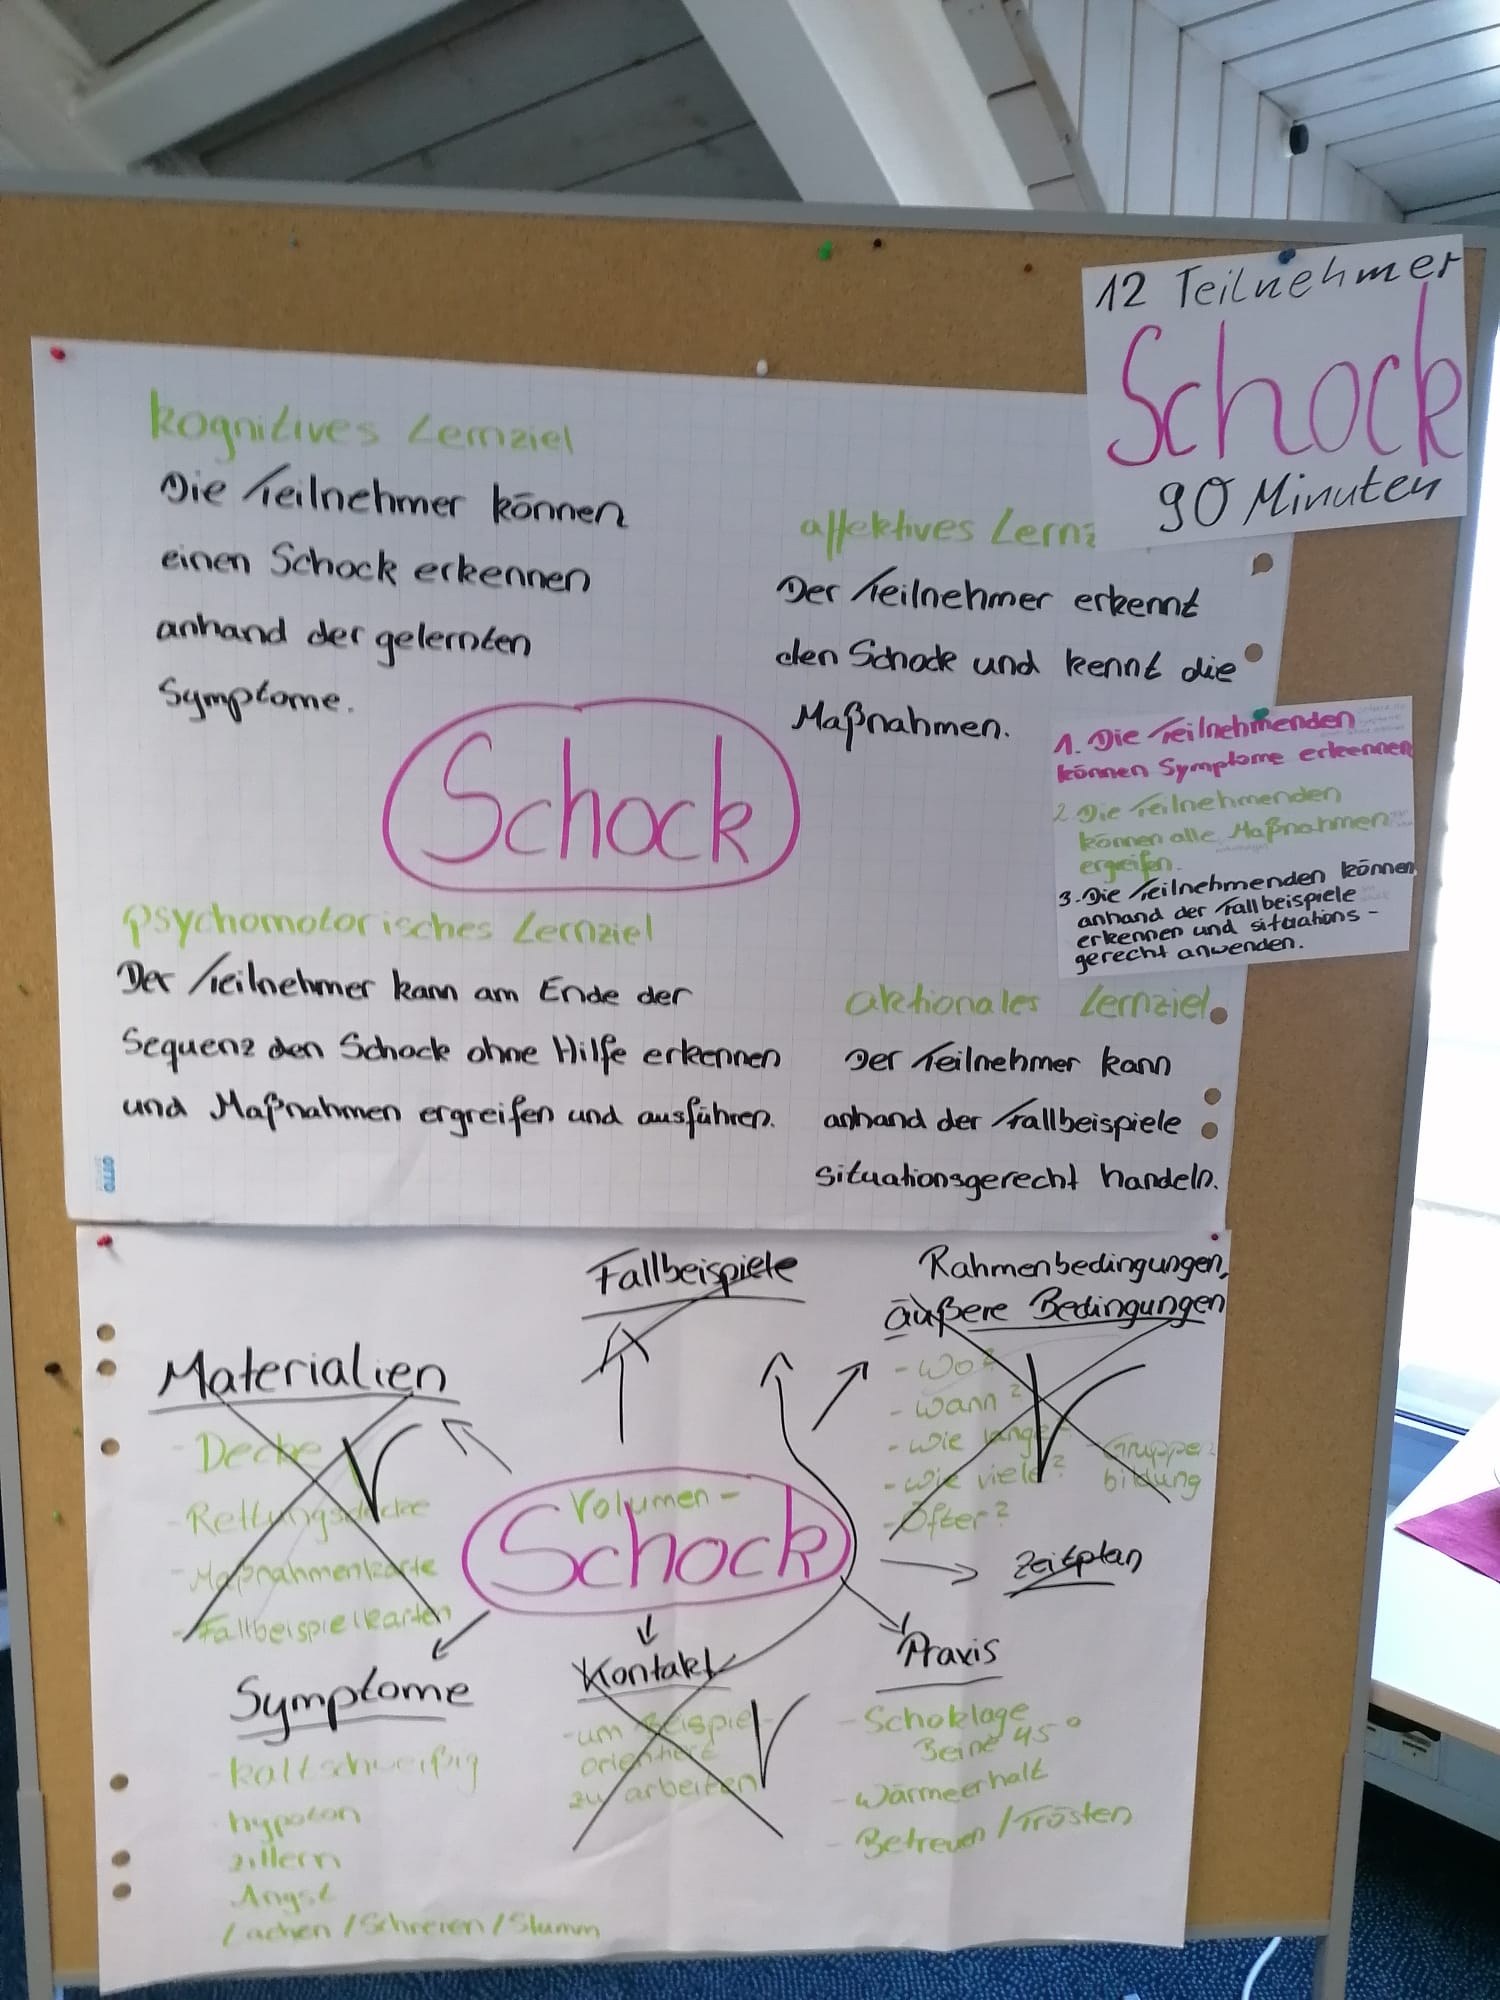 12 Teilnehmer
Schock
90 Minuten
kognitives Lernziel
Die Teilnehmer können
einen Schock erkennen
anhand der gelernten
Symptome.
affektives Lernz
Der Teilnehmer erkennt
den Schock und kennt die
Maßnahmen.
1. Die Teilnehmenden
können Symptome erkennen
2. Die Teilnehmenden
können alle Maßnahmen
ergreifen.
3. Die Teilnehmenden können
anhand der Fallbeispiele
erkennen und situations-
gerecht anwenden.
Schock
psychomotorisches Lernziel
Der Teilnehmer kann am Ende der
Sequenz den Schock ohne Hilfe erkennen
und Maßnahmen ergreifen und ausführen.
aktionales Lernziel
Der Teilnehmer kann
anhand der Fallbeispiele
situationsgerecht handeln.
OTTO
Fallbeispiele
Rahmenbedingungen,
äußere Bedingungen
- Wo?
- wann?
- wie lange
- wie viele?
- Öfter?
- Gruppen
bildung
Materialien
- Decke
- Rettungsdecke
- Maßnahmenkarte
- Fallbeispielkarten
Volumen-
Schock
Zeitplan
Symptome
- kaltschweißig
- hypoton
- zittern
- Angst
Lachen / Schreien / Stumm
Kontakt
- um Beispiel-
orientiert
zu arbeiten
Praxis
- Schocklage
Beine 45°
- Wärmeerhalt
- Betreuen / Trösten